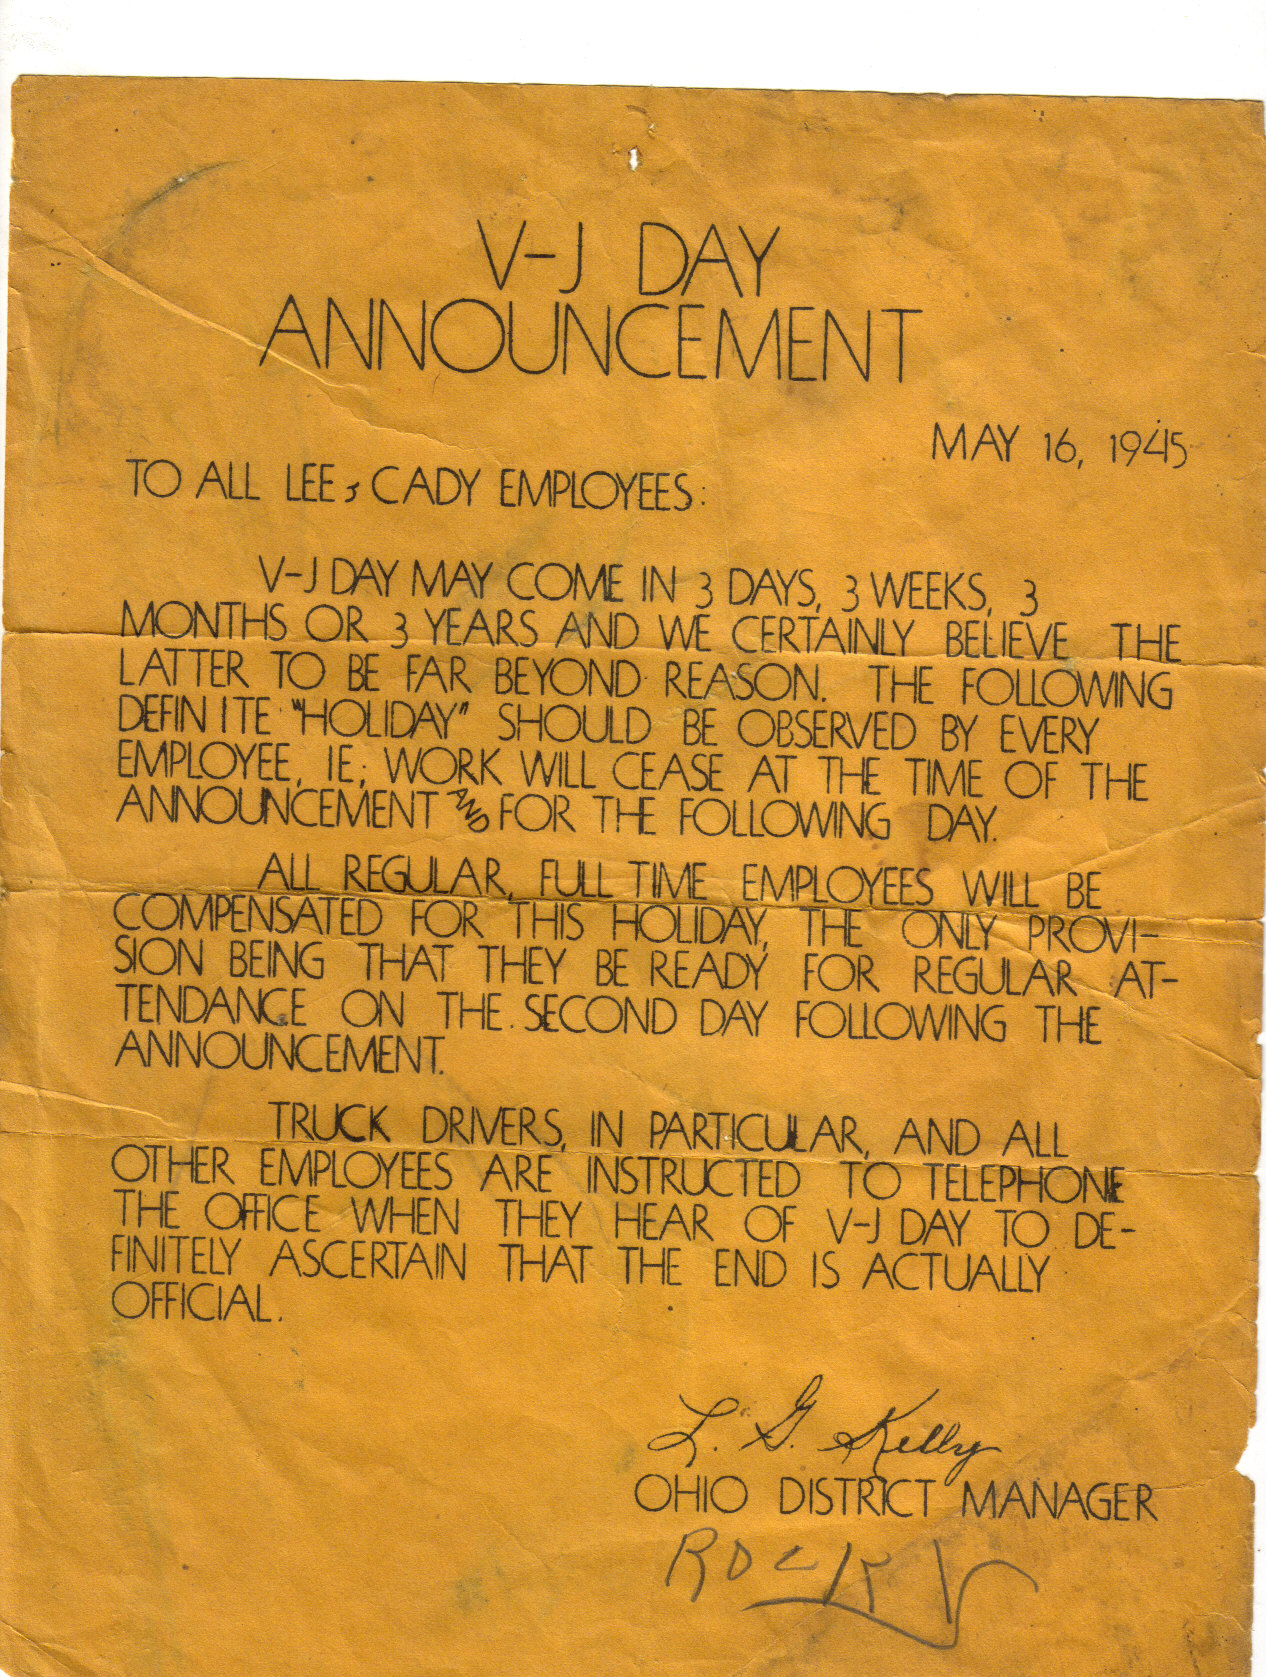 V-J DAY
ANNOUNCEMENT
MAY 16, 1945
TO ALL LEE & CADY EMPLOYEES:
V-J DAY MAY COME IN 3 DAYS, 3 WEEKS, 3
MONTHS OR 3 YEARS AND WE CERTAINLY BELIEVE THE
LATTER TO BE FAR BEYOND REASON. THE FOLLOWING
DEFINITE "HOLIDAY" SHOULD BE OBSERVED BY EVERY
EMPLOYEE, IE; WORK WILL CEASE AT THE TIME OF THE
ANNOUNCEMENT AND FOR THE FOLLOWING DAY.
ALL REGULAR, FULL TIME EMPLOYEES WILL BE
COMPENSATED FOR THIS HOLIDAY, THE ONLY PROVI-
SION BEING THAT THEY BE READY FOR REGULAR AT-
TENDANCE ON THE SECOND DAY FOLLOWING THE
ANNOUNCEMENT.
TRUCK DRIVERS, IN PARTICULAR, AND ALL
OTHER EMPLOYEES ARE INSTRUCTED TO TELEPHONE
THE OFFICE WHEN THEY HEAR OF V-J DAY TO DE-
FINITELY ASCERTAIN THAT THE END IS ACTUALLY
OFFICIAL.
L. G. Kelly
OHIO DISTRICT MANAGER
ROCKY